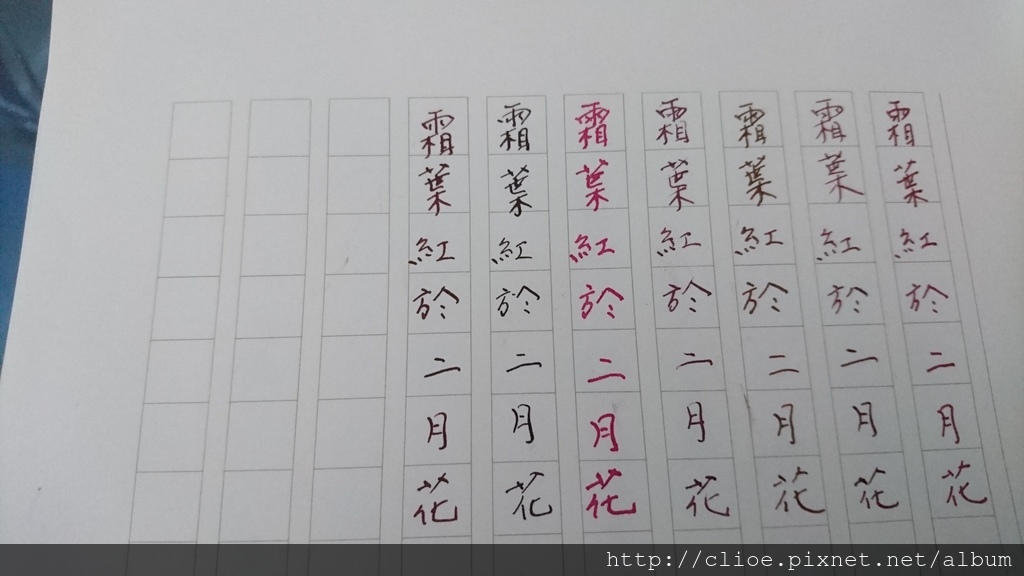 霜葉紅於二月花
霜葉紅於二月花
霜葉紅於二月花
霜葉紅於二月花
霜葉紅於二月花
霜葉紅於二月花
霜葉紅於二月花
http://clioe.pixnet.net/album